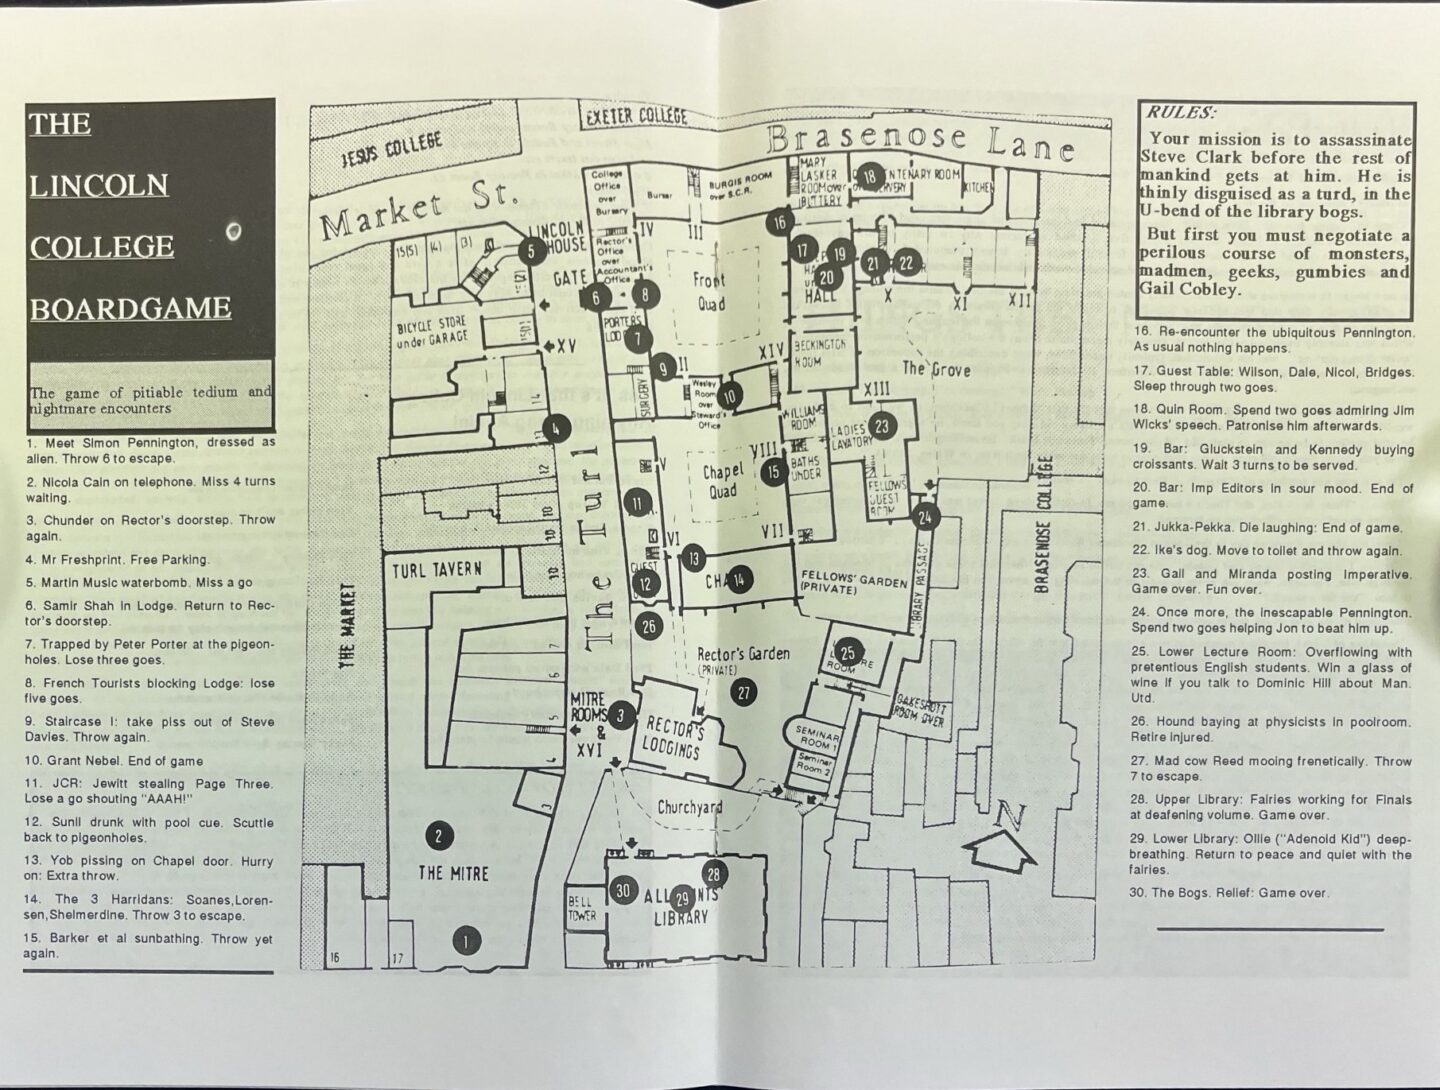 THE
LINCOLN
COLLEGE
BOARDGAME
The game of pitiable tedium and
nightmare encounters
1. Meet Simon Pennington, dressed as
alien. Throw 6 to escape.
2. Nicola Cain on telephone. Miss 4 turns
waiting.
3. Chunder on Rector's doorstep. Throw
again.
4. Mr Freshprint. Free Parking.
5. Martin Music waterbomb. Miss a go
6. Samir Shah in Lodge. Return to Rec-
tor's doorstep.
7. Trapped by Peter Porter at the pigeon-
holes. Lose three goes.
8. French Tourists blocking Lodge: lose
five goes.
9. Staircase I: take piss out of Steve
Davies. Throw again.
10. Grant Nebel. End of game
11. JCR: Jewitt stealing Page Three.
Lose a go shouting "AAAH!"
12. Sunil drunk with pool cue. Scuttle
back to pigeonholes.
13. Yob pissing on Chapel door. Hurry
on: Extra throw.
14. The 3 Harridans: Soanes,Loren-
sen,Shelmerdine. Throw 3 to escape.
15. Barker et al sunbathing. Throw yet
again.
JESUS COLLEGE
EXETER COLLEGE
Brasenose Lane
Market St.
College
Office
over
Bursery
Bursar
BURGIS ROOM
over S.C.R.
MARY
LASKER
ROOM over
BUTTERY
18
KITCHEN
15(5)
(4)
(3)
5
LINCOLN
HOUSE
IV
III
16
Rector's
Office
over
Accountant's
Office
GATE
6
8
Front
Quad
17
19
20
HALL
21
22
X
XI
XII
BICYCLE STORE
under GARAGE
XV
PORTERS
7
9
II
XIV
BECKINGTON
ROOM
The Grove
SURGERY
Wesley
Room
over
Steward's
Office
10
XIII
14
4
WILLIAMS
ROOM
LADIES'
LAVATORY
23
VIII
V
Chapel
Quad
15
BATHS
UNDER
FELLOWS
GUEST
ROOM
12
10
10
11
24
The Turl
VI
VII
TURL TAVERN
10
12
13
14
FELLOWS' GARDEN
(PRIVATE)
LIBRARY PASSAGE
BRASENOSE COLLEGE
THE MARKET
26
7
6
5
4
3
Rector's Garden
(PRIVATE)
25
27
MITRE
ROOMS
&
XVI
3
RECTOR'S
LODGINGS
OAKESHOTT
ROOM OVER
SEMINAR
ROOM 1
Seminar
Room 2
Churchyard
N
2
THE MITRE
1
16
17
BELL
TOWER
30
28
29
LIBRARY
RULES:
Your mission is to assassinate
Steve Clark before the rest of
mankind gets at him. He is
thinly disguised as a turd, in the
U-bend of the library bogs.
But first you must negotiate a
perilous course of monsters,
madmen, geeks, gumbies and
Gail Cobley.
16. Re-encounter the ubiquitous Pennington.
As usual nothing happens.
17. Guest Table: Wilson, Dale, Nicol, Bridges.
Sleep through two goes.
18. Quin Room. Spend two goes admiring Jim
Wicks' speech. Patronise him afterwards.
19. Bar: Gluckstein and Kennedy buying
croissants. Wait 3 turns to be served.
20. Bar: Imp Editors in sour mood. End of
game.
21. Jukka-Pekka. Die laughing: End of game.
22. Ike's dog. Move to toilet and throw again.
23. Gail and Miranda posting Imperative.
Game over. Fun over.
24. Once more, the inescapable Pennington.
Spend two goes helping Jon to beat him up.
25. Lower Lecture Room: Overflowing with
pretentious English students. Win a glass of
wine if you talk to Dominic Hill about Man.
Utd.
26. Hound baying at physicists in poolroom.
Retire injured.
27. Mad cow Reed mooing frenetically. Throw
7 to escape.
28. Upper Library: Fairies working for Finals
at deafening volume. Game over.
29. Lower Library: Ollie ("Adenoid Kid") deep-
breathing. Return to peace and quiet with the
fairies.
30. The Bogs. Relief: Game over.